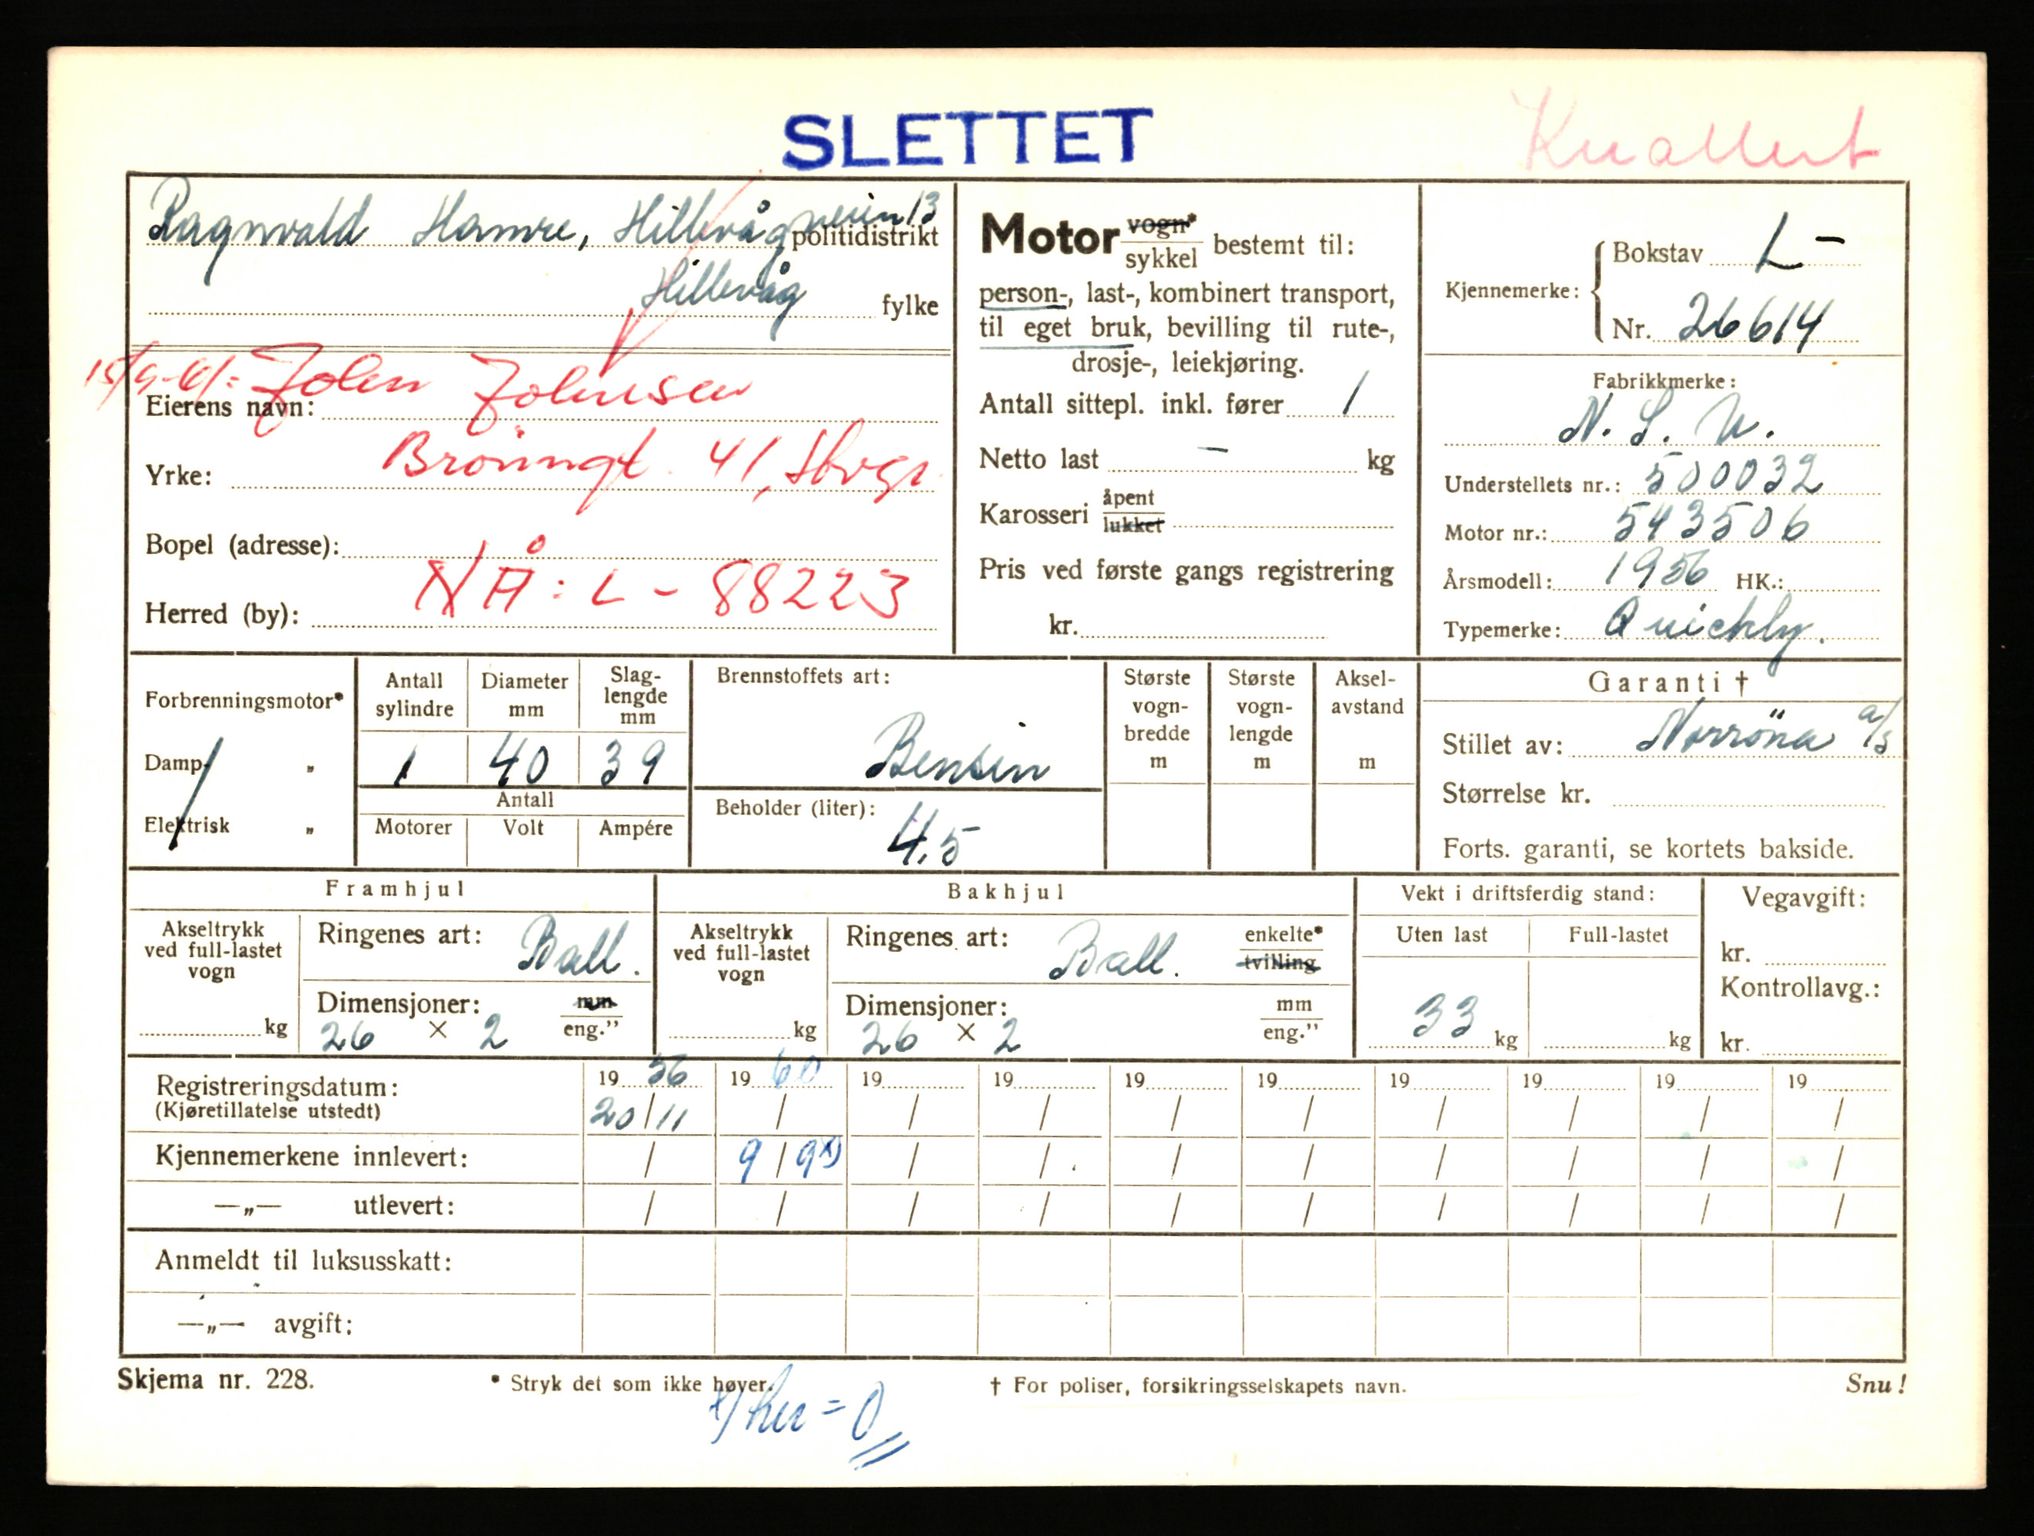 SLETTET
Knallert
Ragnvald Hamre, Hillevågveien 13
politidistrikt
Hillevåg fylke
15/9-61: John Johnsen
Eierens navn:
41, Stvgr.
Yrke:
Bopel (adresse):
NÅ: L - 88223
Herred (by):
Motor vogn* sykkel bestemt til:
person-, last-, kombinert transport,
til eget bruk, bevilling til rute-,
drosje-, leiekjøring.
Antall sittepl. inkl. fører 1
Netto last - kg
Karosseri åpent lukket
Pris ved første gangs registrering
kr.
Kjennemerke: Bokstav L-
Nr. 26614
Fabrikkmerke:
N. S. U.
Understellets nr.: 500032
Motor nr.: 543506
Årsmodell: 1956 HK.:
Typemerke: Quickly.
Forbrenningsmotor*
Damp- „
Elektrisk „
Antall sylindre Diameter mm Slag-lengde mm
1 40 39
Antall
Motorer Volt Ampére
Brennstoffets art:
Bensin
Beholder (liter):
4,5
Største vogn-bredde m Største vogn-lengde m Aksel-avstand m
Garanti †
Stillet av: Norröna a/s
Størrelse kr.
Forts. garanti, se kortets bakside.
Framhjul
Akseltrykk ved full-lastet vogn
kg
Ringenes art: Ball.
Dimensjoner: mm eng.”
26 × 2
Bakhjul
Akseltrykk ved full-lastet vogn
kg
Ringenes art: Ball. enkelte* tvilling
Dimensjoner: mm eng.”
26 × 2
Vekt i driftsferdig stand:
Uten last Full-lastet
33 kg kg
Vegavgift:
kr.
Kontrollavg.:
kr.
Registreringsdatum: 19 56 19 60 19 19 19 19 19 19 19 19
(Kjøretillatelse utstedt) 20/11 / / / / / / / / /
Kjennemerkene innlevert: / 9/9 x) / / / / / / / /
—„— utlevert: / / / / / / / / / /
Anmeldt til luksusskatt:
—„— avgift:
Skjema nr. 228. * Stryk det som ikke høyer. † For poliser, forsikringsselskapets navn. Snu!
x) her = 0